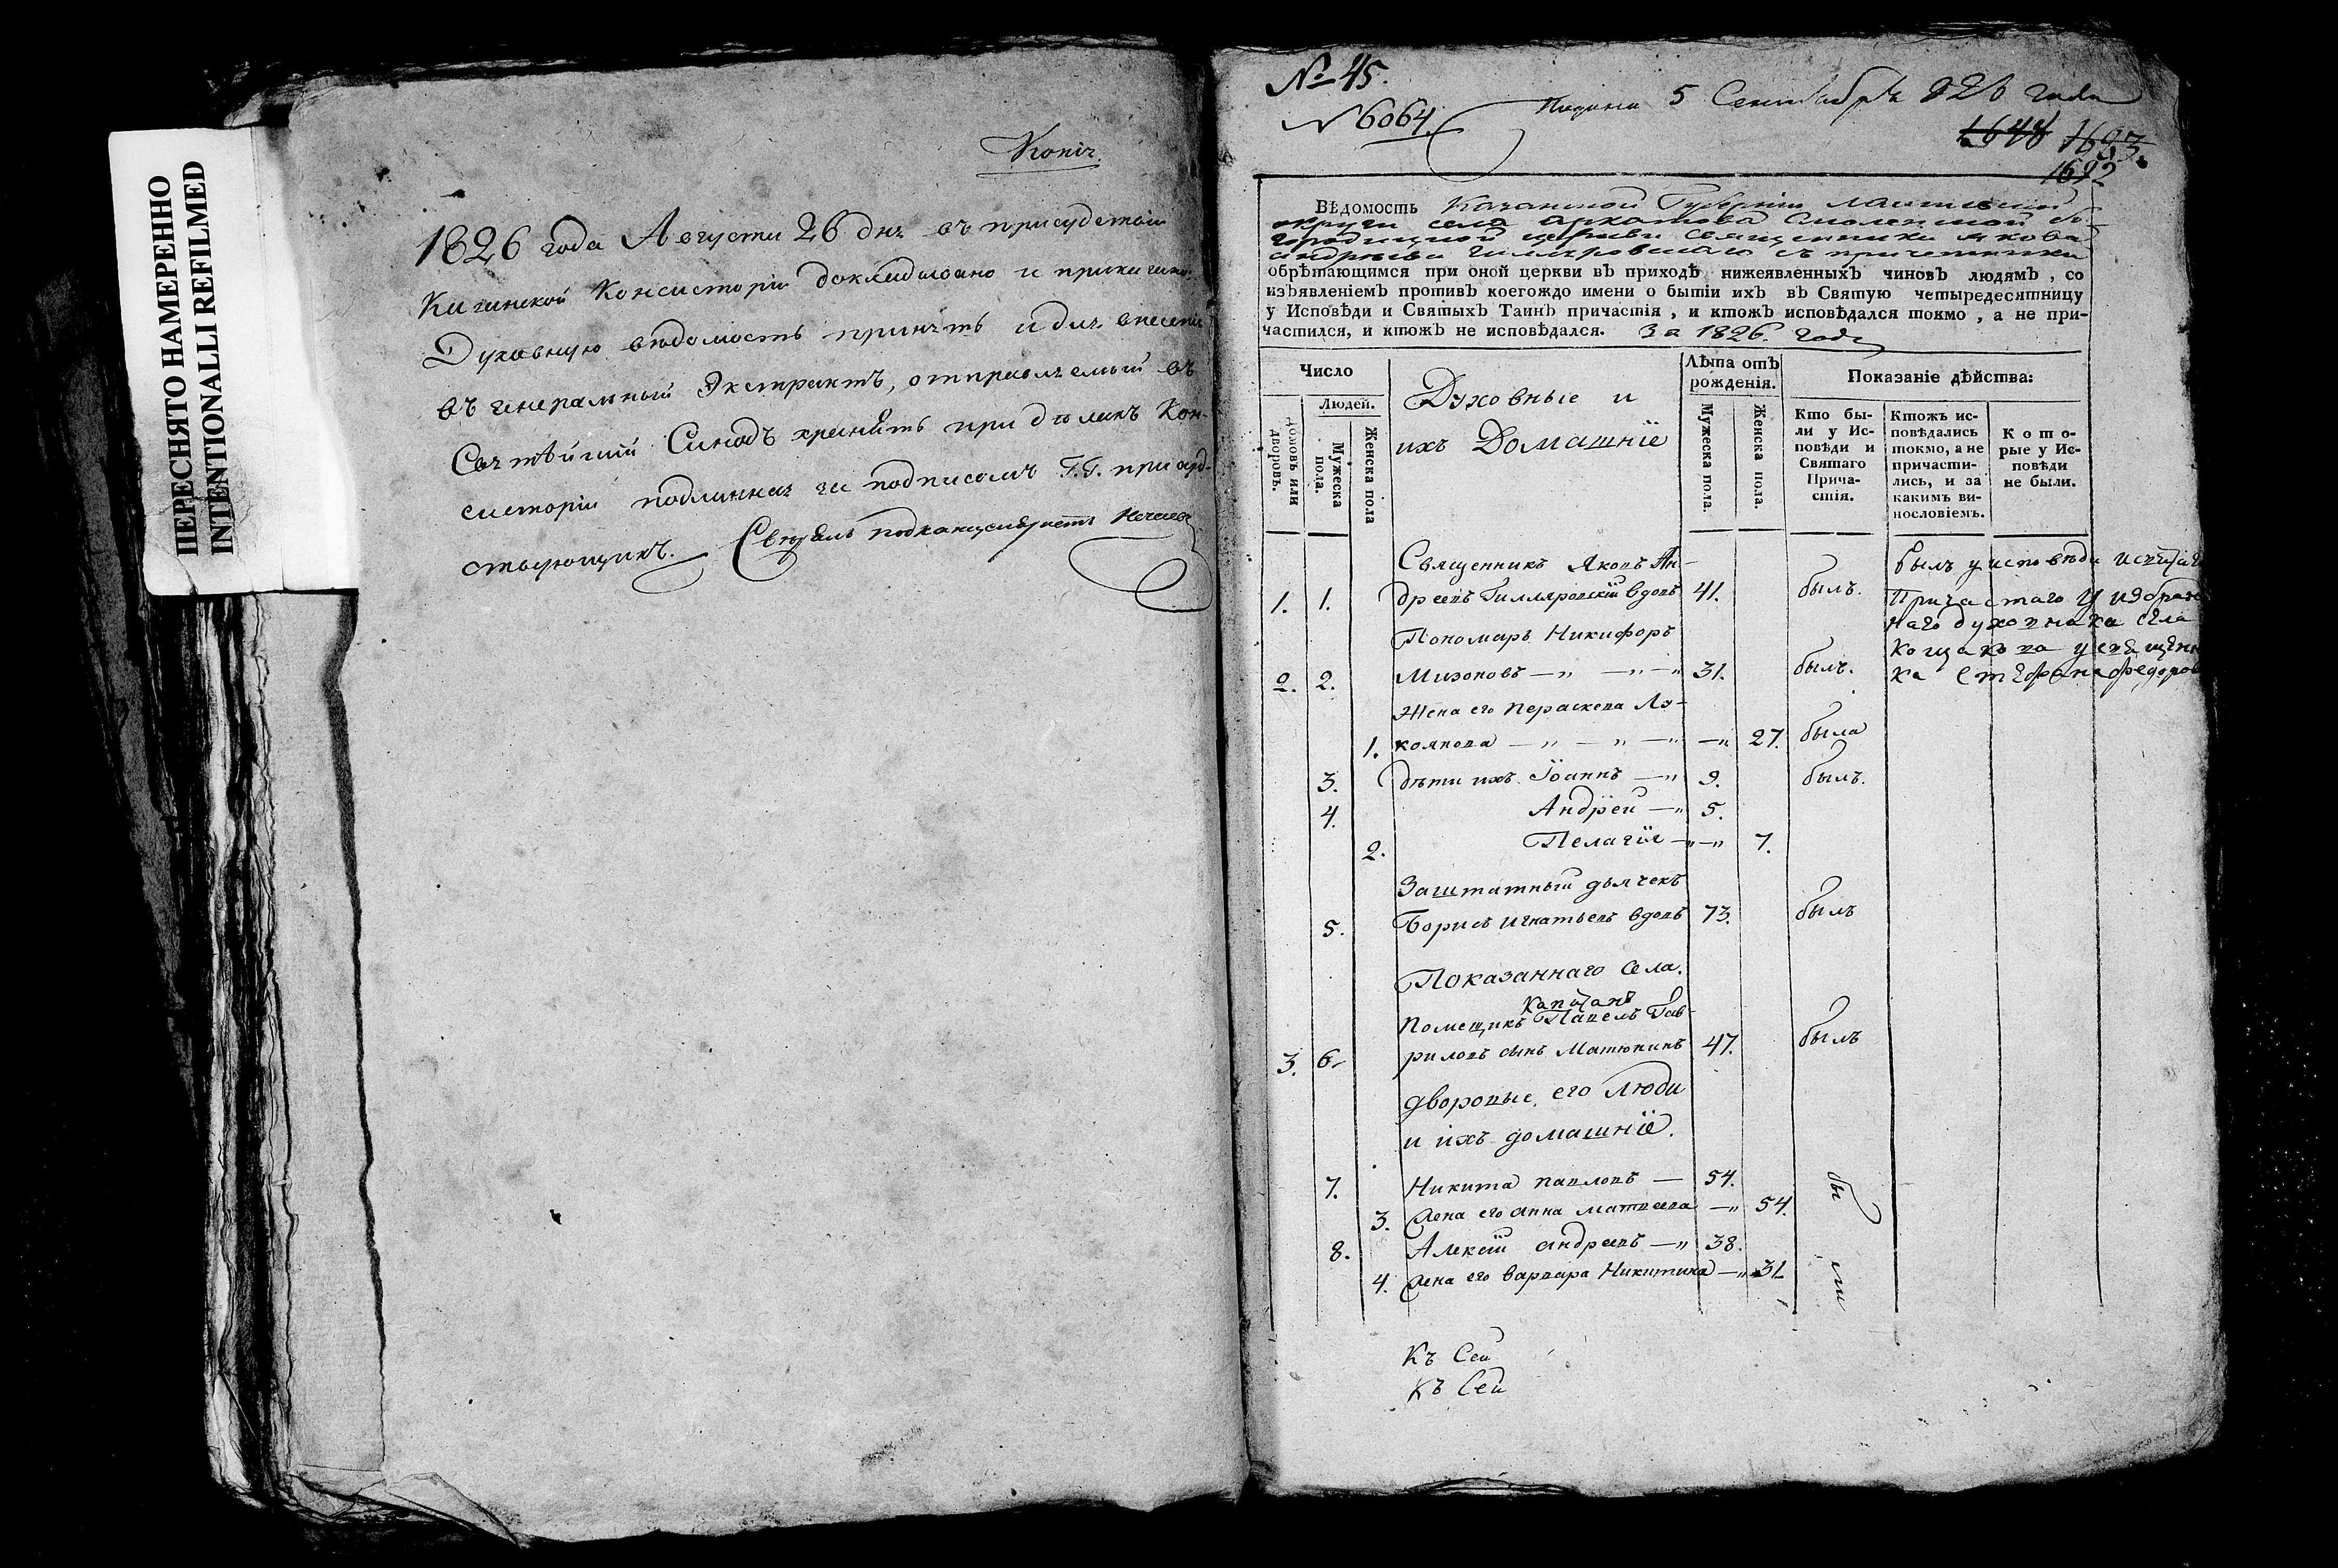 ПЕРЕСНЯТО НАМЕРЕННО
INTENTIONALLI REFILMED
Копія
1826 года Августа 26 дня въ присудствіи
Казанской Консисторіи докладывано и приказано
Духовную вѣдомость принять и для внесенія
въ генеральный Экстрактъ, отправляемый въ
Святѣйшій Синодъ хранить при дѣлахъ Кон-
систоріи подлинная за подписомъ Г.Г. при сут-
ствующихъ. Свѣрялъ подканцеляристъ Нечаевъ
№ 45.
№ 6064
Подана 5 Сентября 826 года
1648 1693.
1692
Вѣдомость Казанской Губерніи Лаишевской
округи села Архатова Смоленской Бо-
городицкой церкви священника Якова
Андреева Гилляровскаго съ причетники
обрѣтающимся при оной церкви въ приходѣ нижеявленныхъ чиновъ людямъ, со
изъявленіемъ противъ коегождо имени о бытіи ихъ въ Святую четыредесятницу
у Исповѣди и Святыхъ Таинъ причастія, и ктожъ исповѣдался токмо, а не при-
частился, и ктожъ не исповѣдался. За 1826. годъ
Число
Людей.
Домовъ или дворовъ.
Мужеска пола.
Женска пола
Духовные и
ихъ Домашніе
Лѣта отъ рожденія.
Мужеска пола.
Женска пола.
Показаніе дѣйства:
Кто бы-
ли у Ис-
повѣди и
Святаго
Прича-
стія.
Ктожъ ис-
повѣдались
токмо, а не
причасти-
лись, и за
какимъ ви-
нословіемъ.
Кото-
рые у Ис-
повѣди
не были.
Священникъ Яковъ Ан-
1. 1. дреевъ Гилляровскій вдовъ 41. былъ.
былъ у исповѣди и святаго
Причастаго у избран
наго духовника села
Кощакова у священни
ка Стефана Федоров
Пономарь Никифоръ
2. 2. Мироновъ —„ —„ —„ 31. былъ.
Жена его Параскева Лу-
1. коянова —„ —„ —„ —„ 27. была
3. дѣти ихъ Іоаннъ —„ 9. былъ.
4. Андрей —„ 5.
2. Пелагія —„ —„ 7.
Заштатный дьячекъ
5. Борисъ Игнатьевъ вдовъ 73. былъ
Показаннаго Села.
Капитанъ
Помещикъ Павелъ Гав-
3. 6. риловъ сынъ Матюнинъ 47. былъ
дворовые его люди
и ихъ домашніе.
7. Никита Павловъ — 54. бы
3. жена его Анна Матвеева —„ 54.
8. Алексѣй Андреевъ —„ 38.
4. жена его Варвара Никитина —„ 31. ли
Къ Сей
Къ Сей